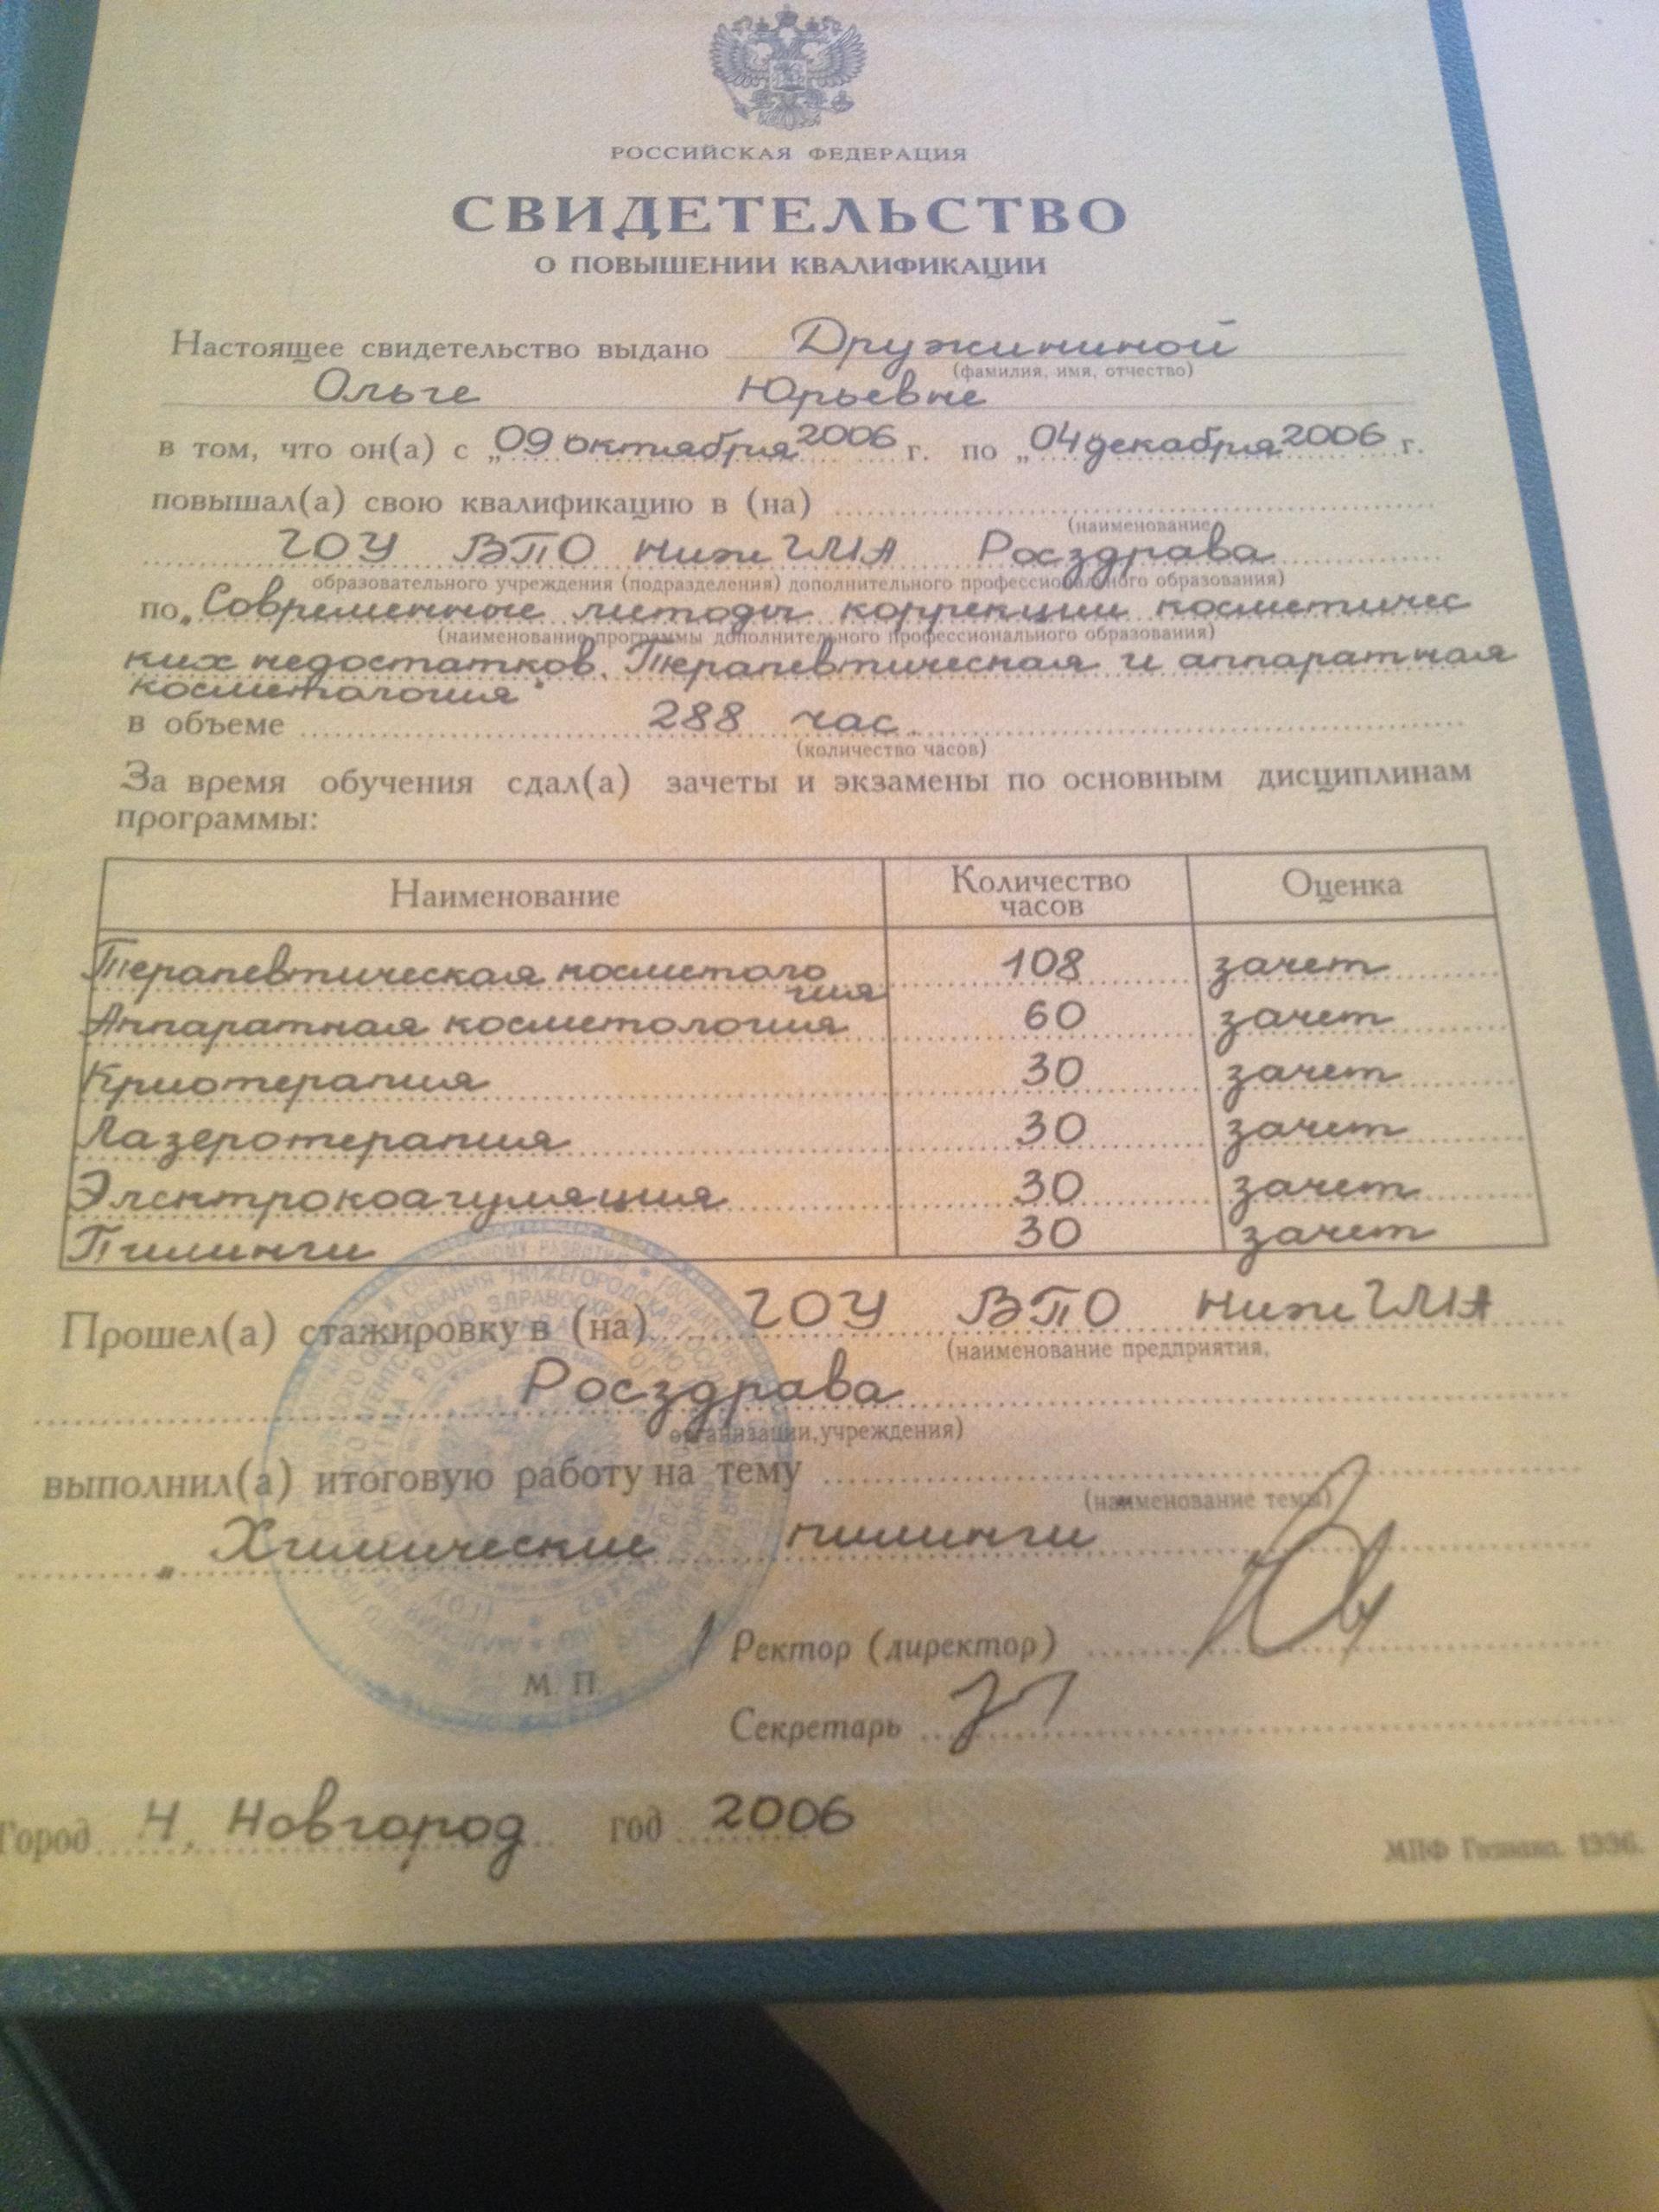 РОССИЙСКАЯ ФЕДЕРАЦИЯ
СВИДЕТЕЛЬСТВО
О ПОВЫШЕНИИ КВАЛИФИКАЦИИ
Настоящее свидетельство выдано Дружининой
(фамилия, имя, отчество)
Ольге Юрьевне
в том, что он(а) с „09 октября 2006 г. по „04 декабря 2006 г.
повышал(а) свою квалификацию в (на)
(наименование
ГОУ ВПО НижГМА Росздрава
образовательного учреждения (подразделения) дополнительного профессионального образования)
по „Современные методы коррекции косметичес
(наименование программы дополнительного профессионального образования)
ких недостатков. Терапевтическая и аппаратная
косметология"
в объеме 288 час.
(количество часов)
За время обучения сдал(а) зачеты и экзамены по основным дисциплинам
программы:
Наименование Количество часов Оценка
Терапевтическая косметология 108 зачет
Аппаратная косметология 60 зачет
Криотерапия 30 зачет
Лазеротерапия 30 зачет
Электрокоагуляция 30 зачет
Пилинги 30 зачет
Прошел(а) стажировку в (на) ГОУ ВПО НижГМА
(наименование предприятия,
Росздрава
организации, учреждения)
выполнил(а) итоговую работу на тему
(наименование темы)
„Химические пилинги
Ректор (директор)
М. П.
Секретарь
Город Н. Новгород год 2006
МПФ Гознака. 1996.